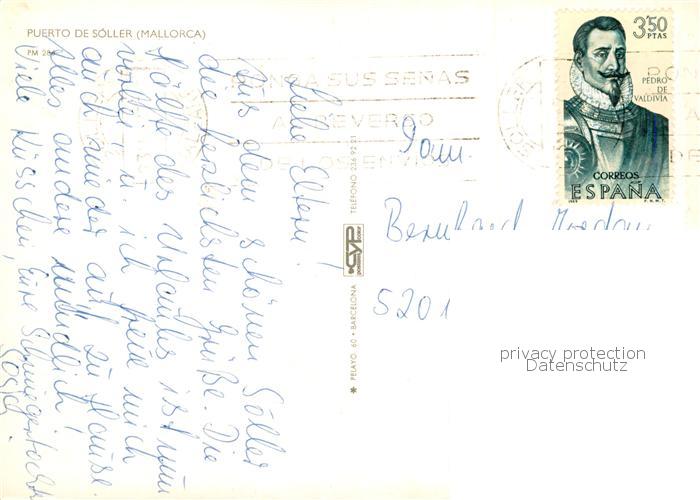 PUERTO DE SÓLLER (MALLORCA)
PM 286
Liebe Eltern!
Aus dem schönen Sóller
die herzlichsten Grüße. Die
Hälfte des Urlaubs ist nun
vorbei, u. ich freue mich
auch wieder auf zu Hause.
Alles andere mündlich!
Viele Küsschen, Eure Schwiegertochter
PONGA SUS SEÑAS
AL REVERSO
DE LOS ENVIOS
TELÉFONO 236 92 21
CYP
✱ PELAYO, 60 • BARCELONA
3'50
PTAS
PEDRO
DE
VALDIVIA
CORREOS
ESPAÑA
F.N.M.T.
Fam.
Bernhard
5201
privacy protection
Datenschutz